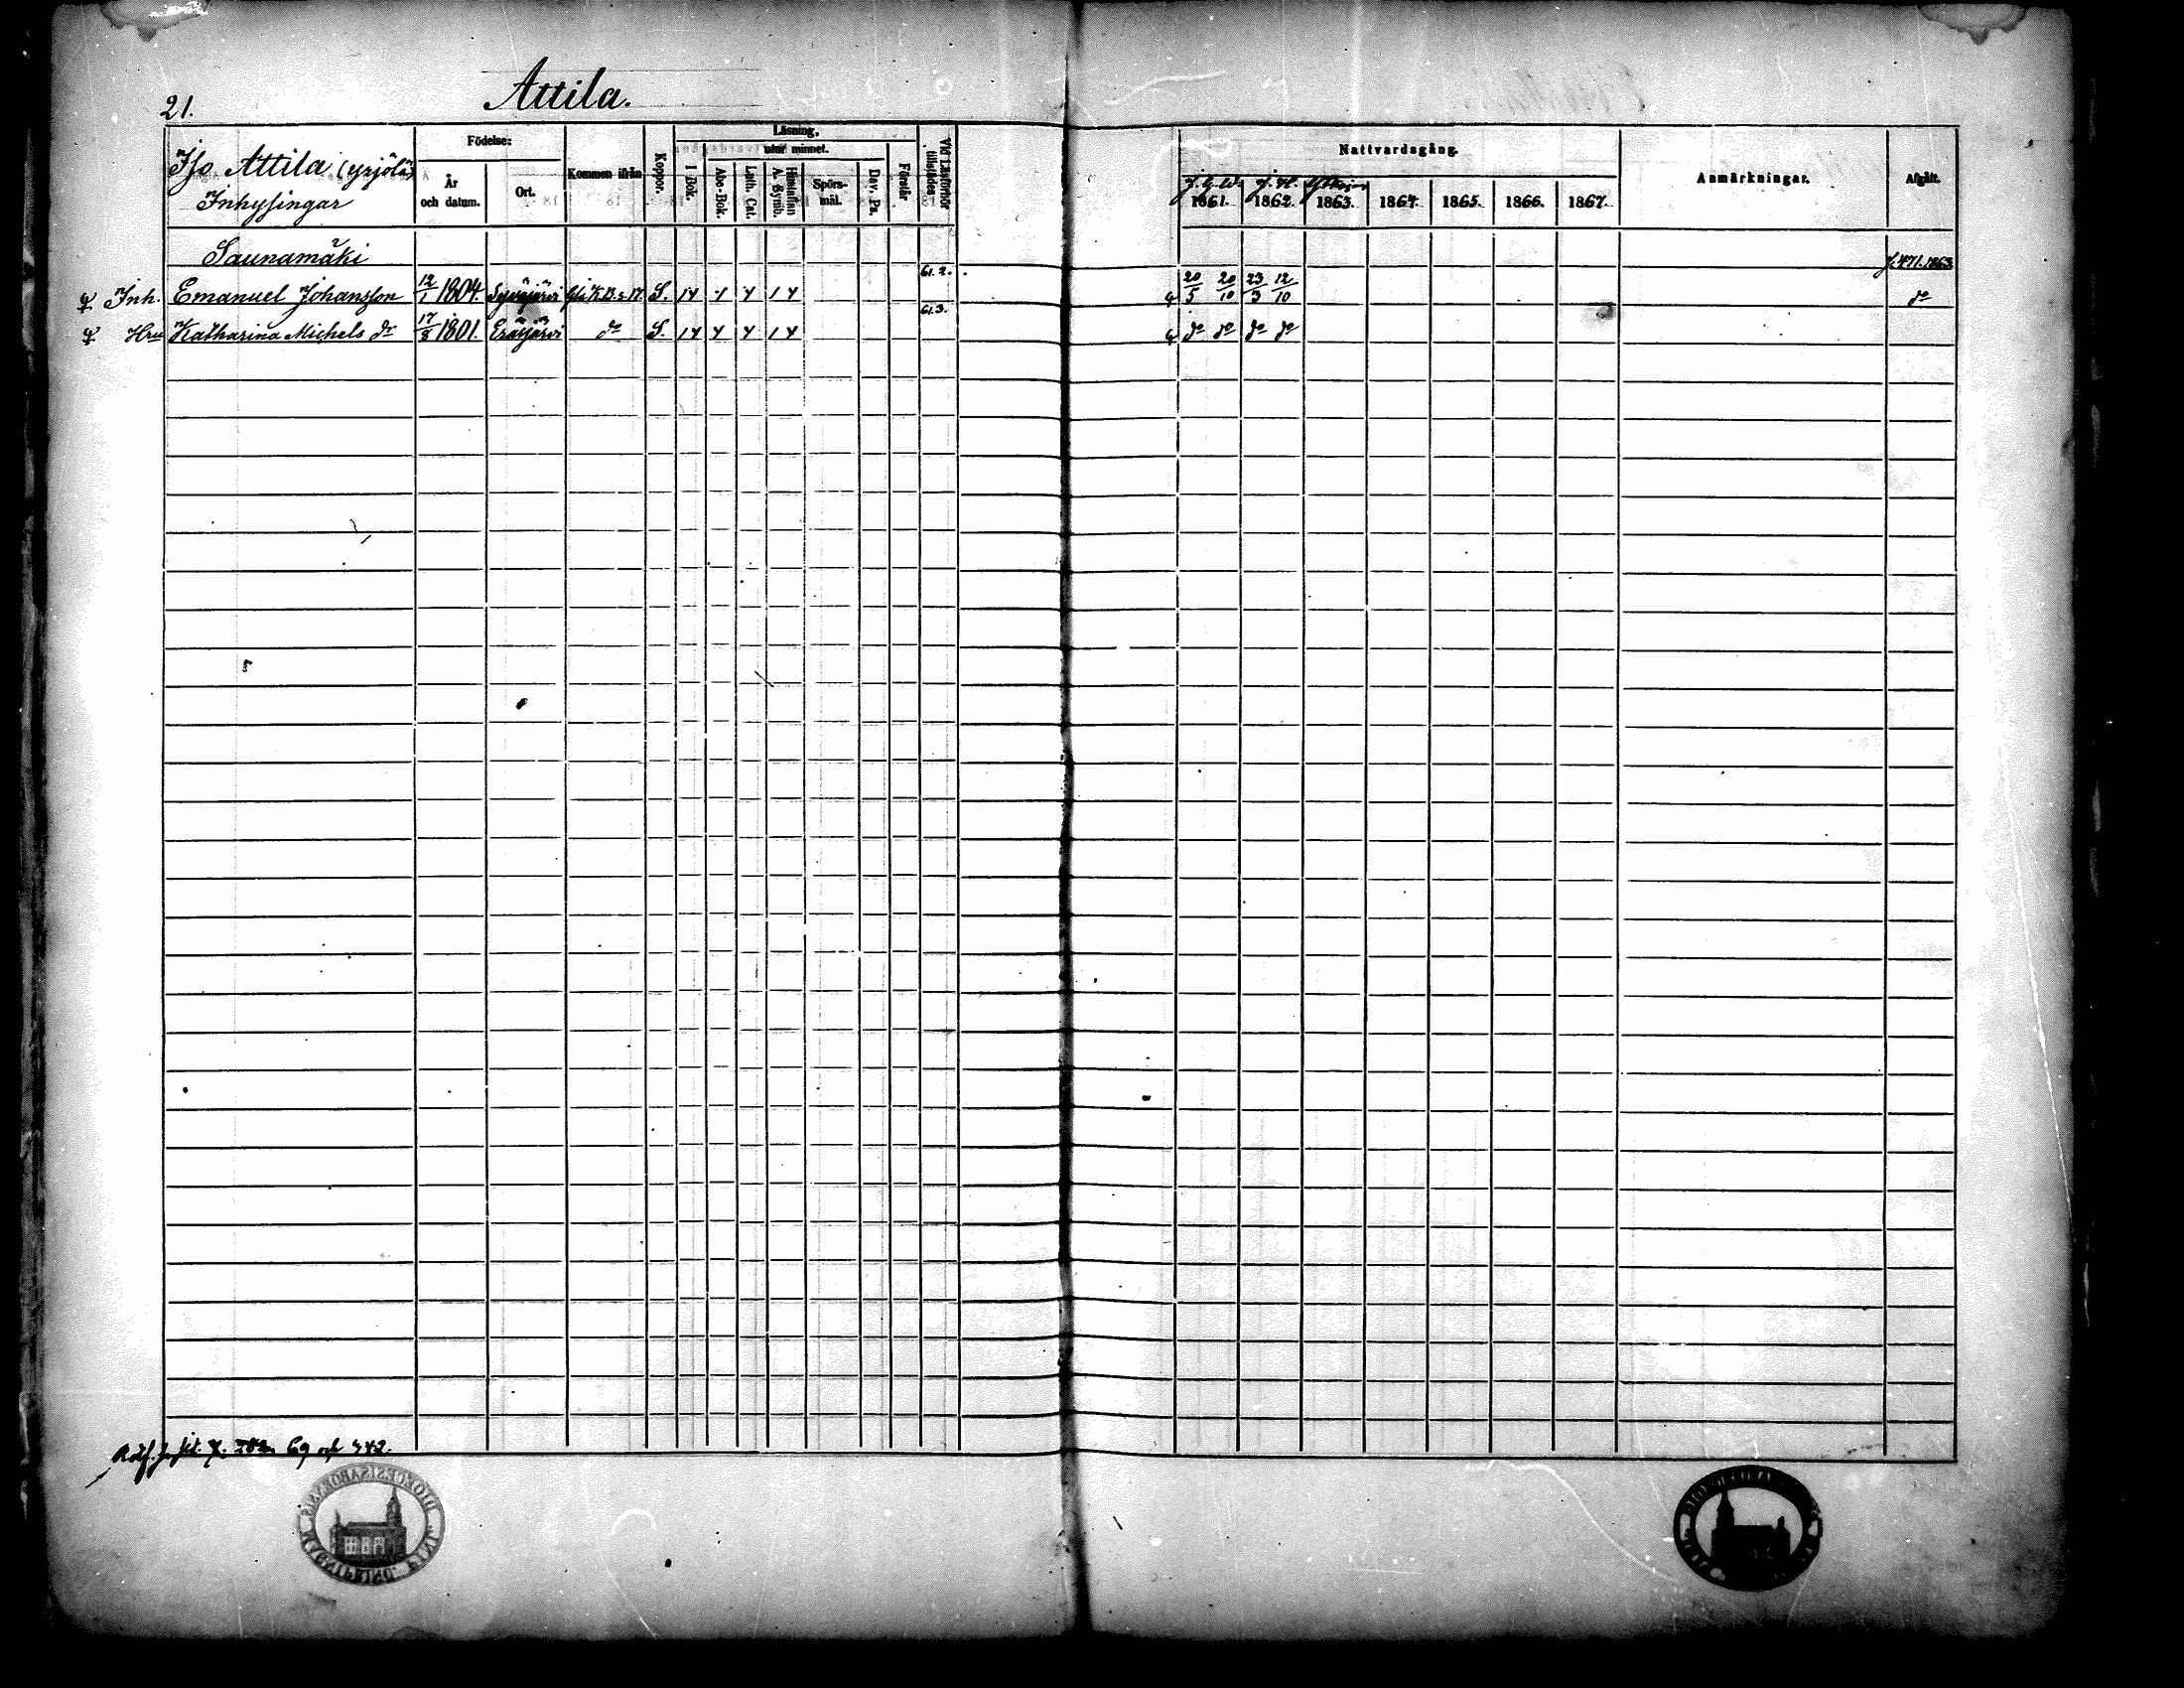 21.
Attila.
Iso Attila (Yrjölä)
Inhysingar
Födelse:
År och datum.
Ort.
Kommen ifrån
Koppor.
Läsning,
I Bok.
utur minnet.
Abc-Bok.
Luth. Cat.
Hustaflan A. Symb.
Spörsmål.
Dav. Ps.
Förstår
Vid Läsförhör tillstädes
Nattvardsgång.
1861. 1862. 1863. 1864. 1865. 1866. 1867.
Anmärkningar.
Afgått.
Saunamäki
Inh. Emanuel Johansson 12/1 1804. S. 61.2. 20/5 20/10 23/3 12/10 do
Hru Katharina Michels dr 17/8 1801. Eräjärvi do S. 61.3. do do do do
69 och 442.